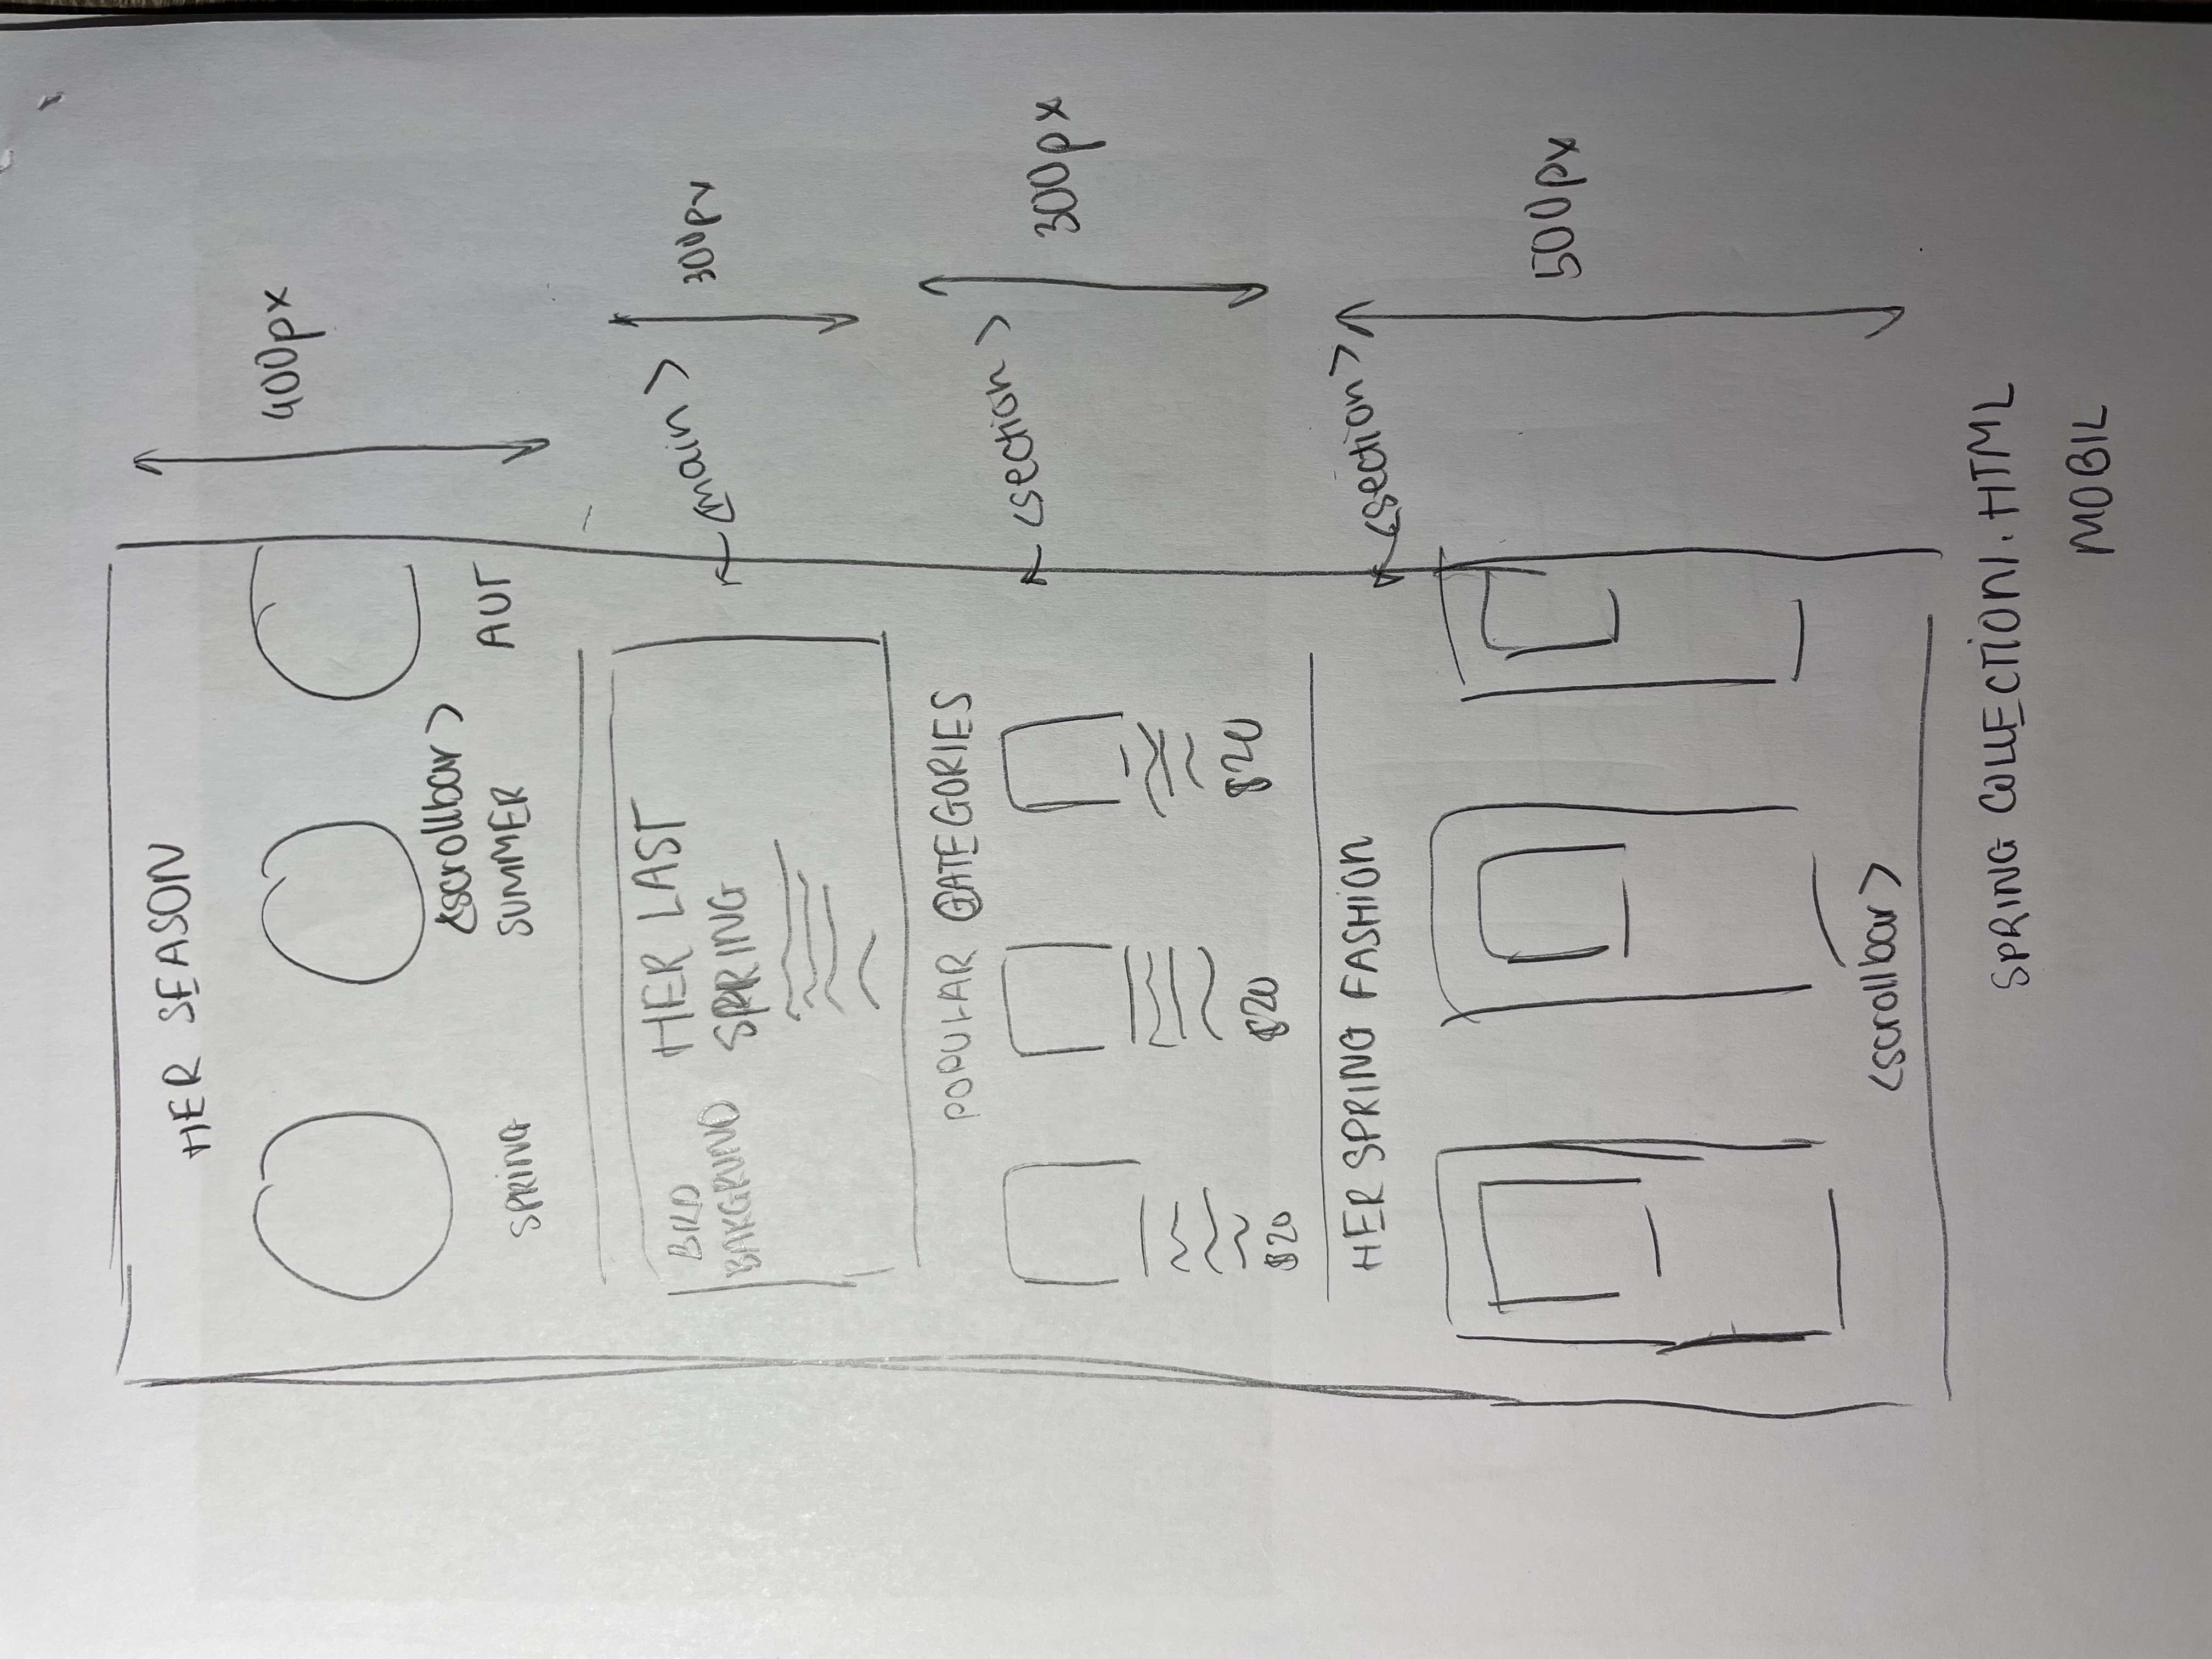 HER SEASON
400px
<scrollbar>
SPRING SUMMER AUT
BRD
BAKGRUND
HER LAST
SPRING
<main>
300px
POPULAR CATEGORIES
<section>
300px
$20 $20 $20
HER SPRING FASHION
<section>
500px
<scrollbar>
SPRING COLLECTION1.HTML
MOBIL